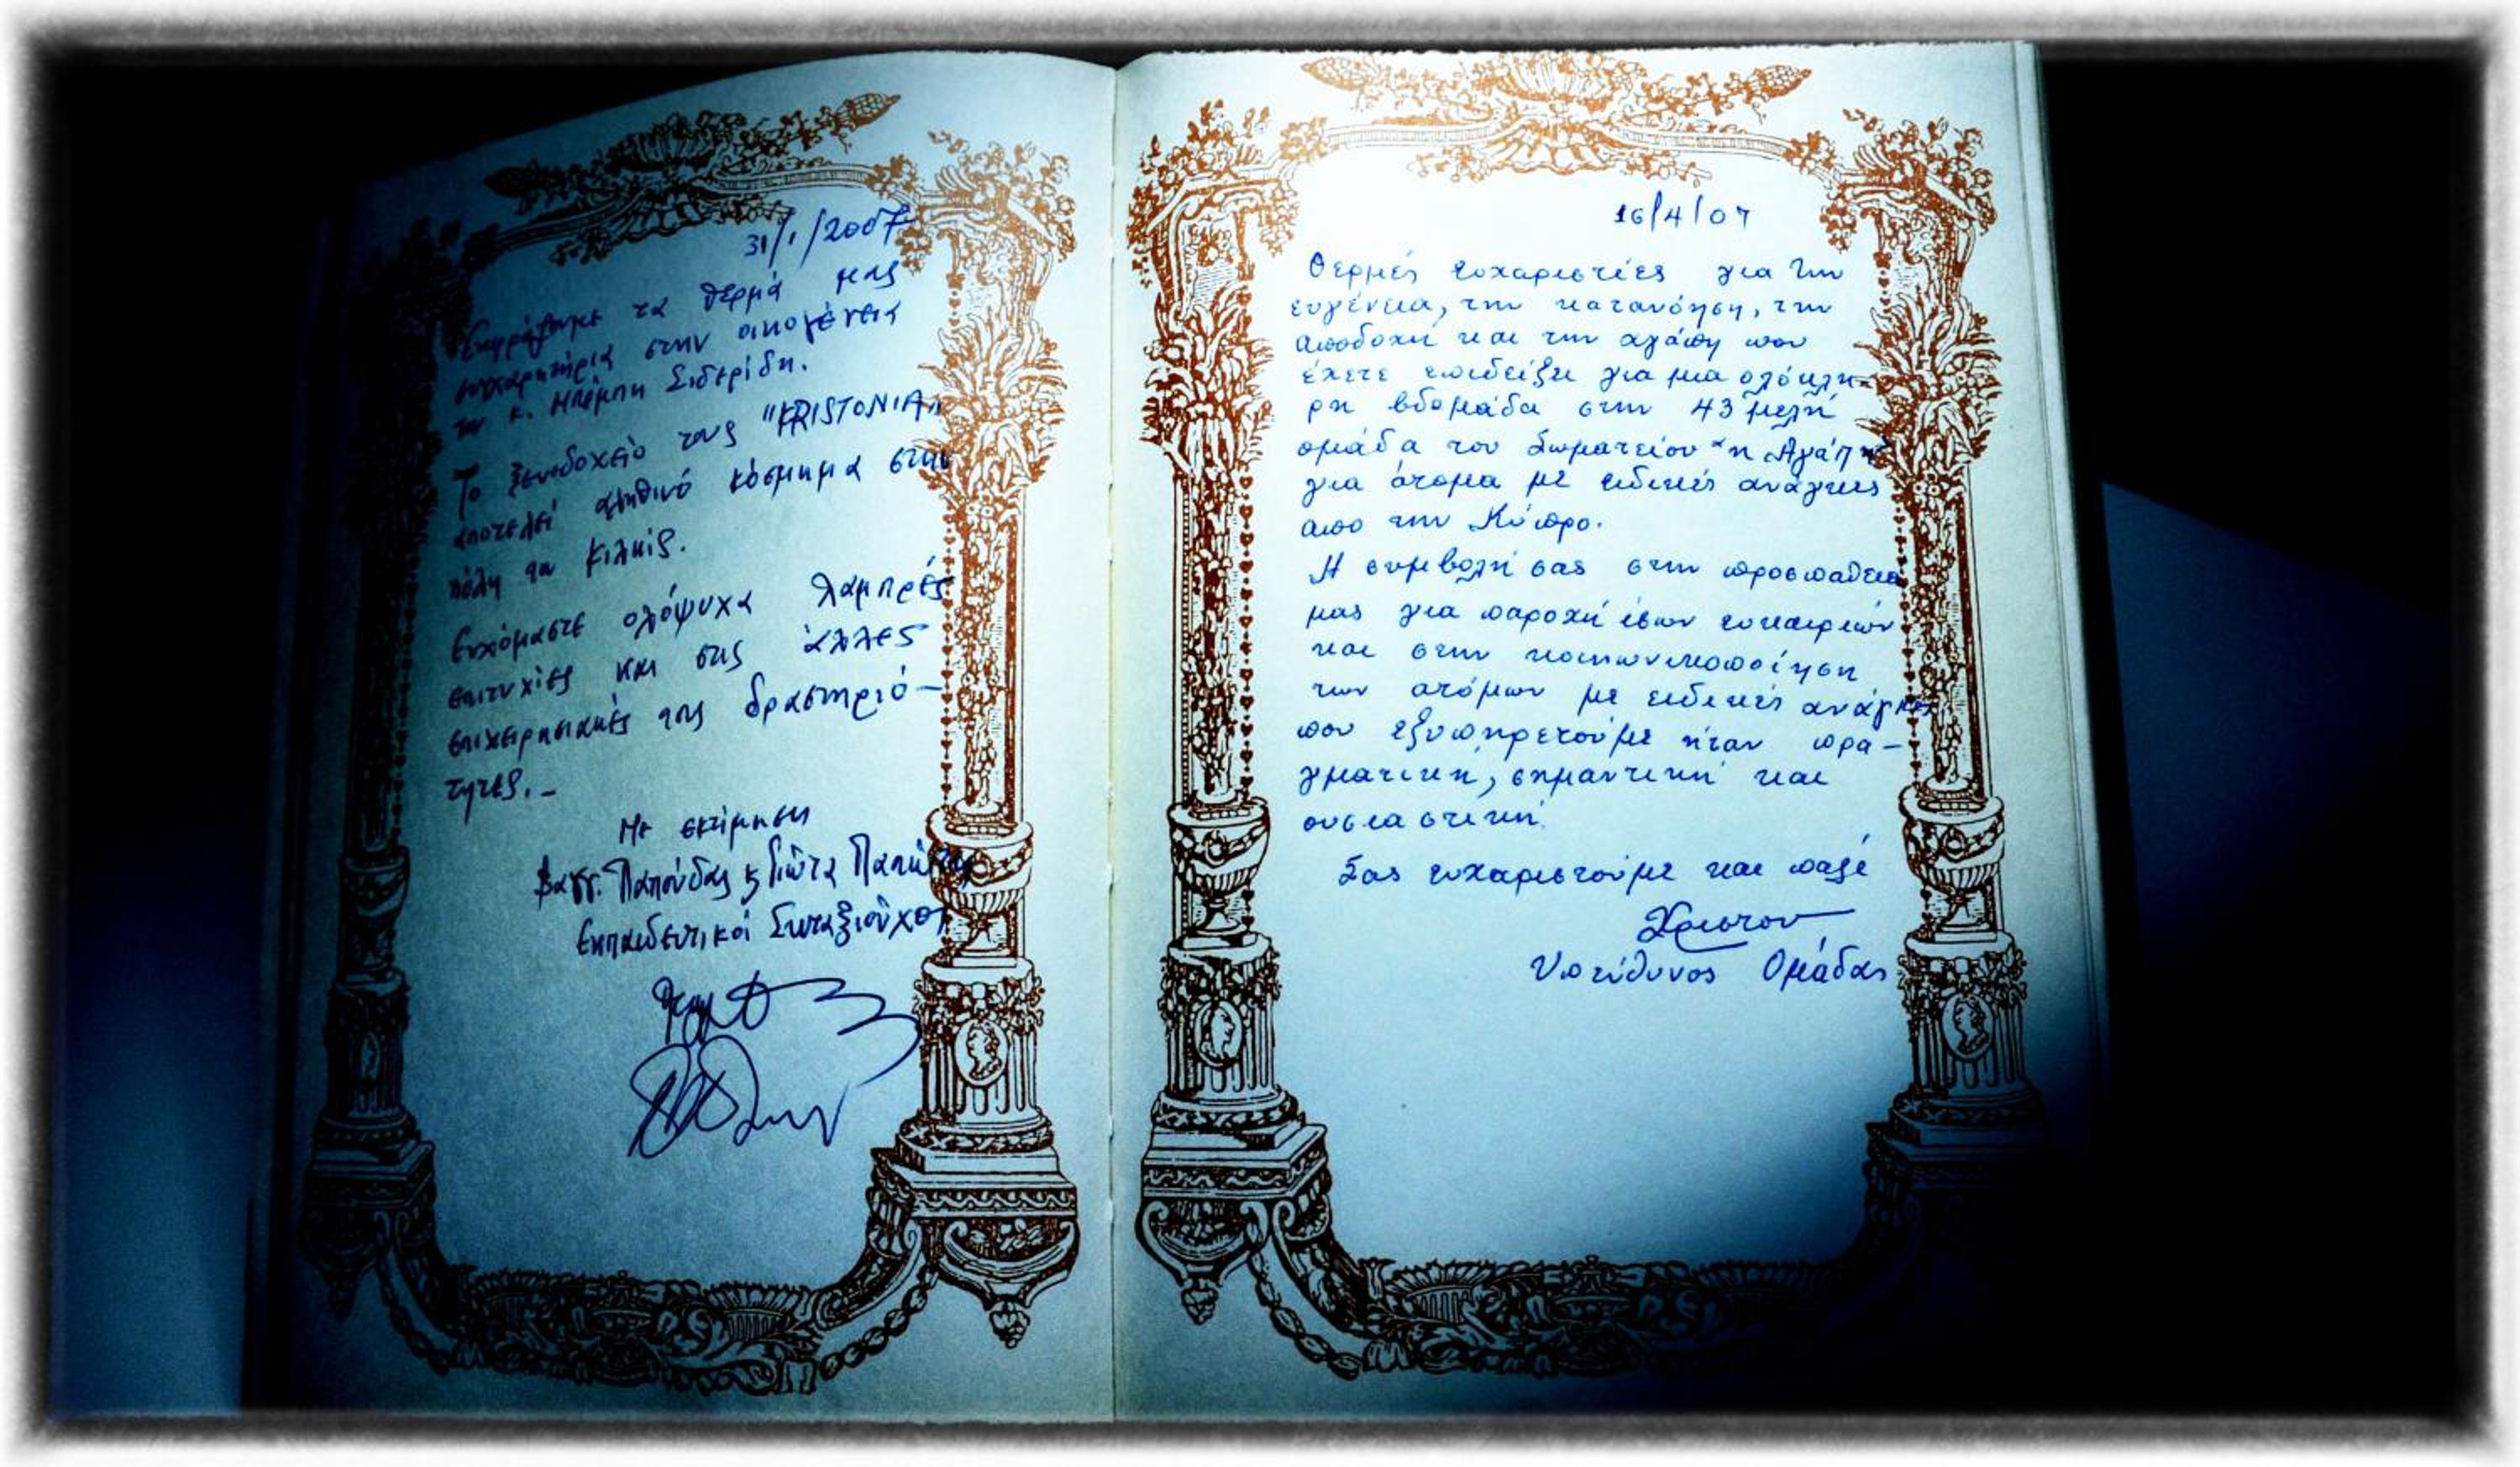 31/1/2007
Εκφράζουμε τα θερμά μας
συγχαρητήρια στην οικογένεια
του κ. Μπάμπη Σιδερίδη.
Το ξενοδοχείο τους "KRISTONIA"
αποτελεί αληθινό κόσμημα στην
πόλη του Κιλκίς.
Ευχόμαστε ολόψυχα λαμπρές
επιτυχίες και στις άλλες
επιχειρησιακές τους δραστηριό-
τητες.-
Με εκτίμηση
Βαγγ. Παπούδας & Γιώτα
Εκπαιδευτικοί Συνταξιούχοι
16/4/07
Θερμές ευχαριστίες για την
ευγένεια, την κατανόηση, την
αποδοχή και την αγάπη που
έχετε επιδείξει για μια ολόκλη-
ρη βδομάδα στην 43 μελή
ομάδα του Σωματείου "η Αγάπη"
για άτομα με ειδικές ανάγκες
απο την Κύπρο.
Η συμβολή σας στην προσπάθεια
μας για παροχή ίσων ευκαιριών
και στην κοινωνικοποίηση
των ατόμων με ειδικές ανάγκες
που εξυπηρετούμε ήταν πρα-
γματική, σημαντική και
ουσιαστική.
Σας ευχαριστούμε και πάλι
Χρίστου
Υπεύθυνος Ομάδας